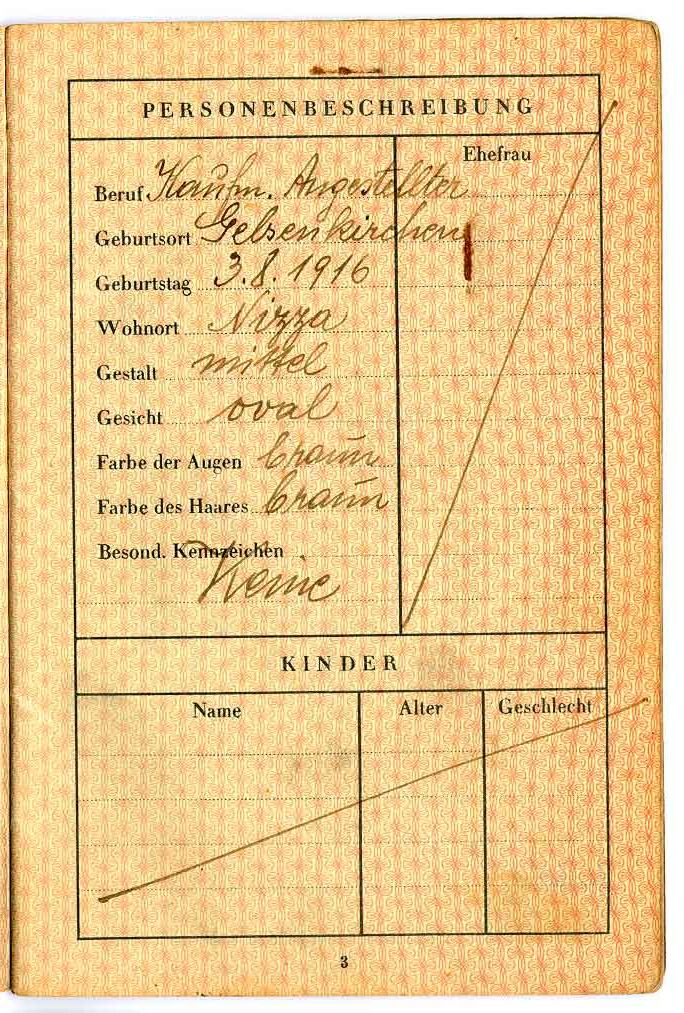 PERSONENBESCHREIBUNG
Ehefrau
Beruf Kaufm. Angestellter
Geburtsort Gelsenkirchen
Geburtstag 3.8.1916
Wohnort Nizza
Gestalt mittel
Gesicht oval
Farbe der Augen braun
Farbe des Haares braun
Besond. Kennzeichen
Keine
KINDER
Name Alter Geschlecht
3